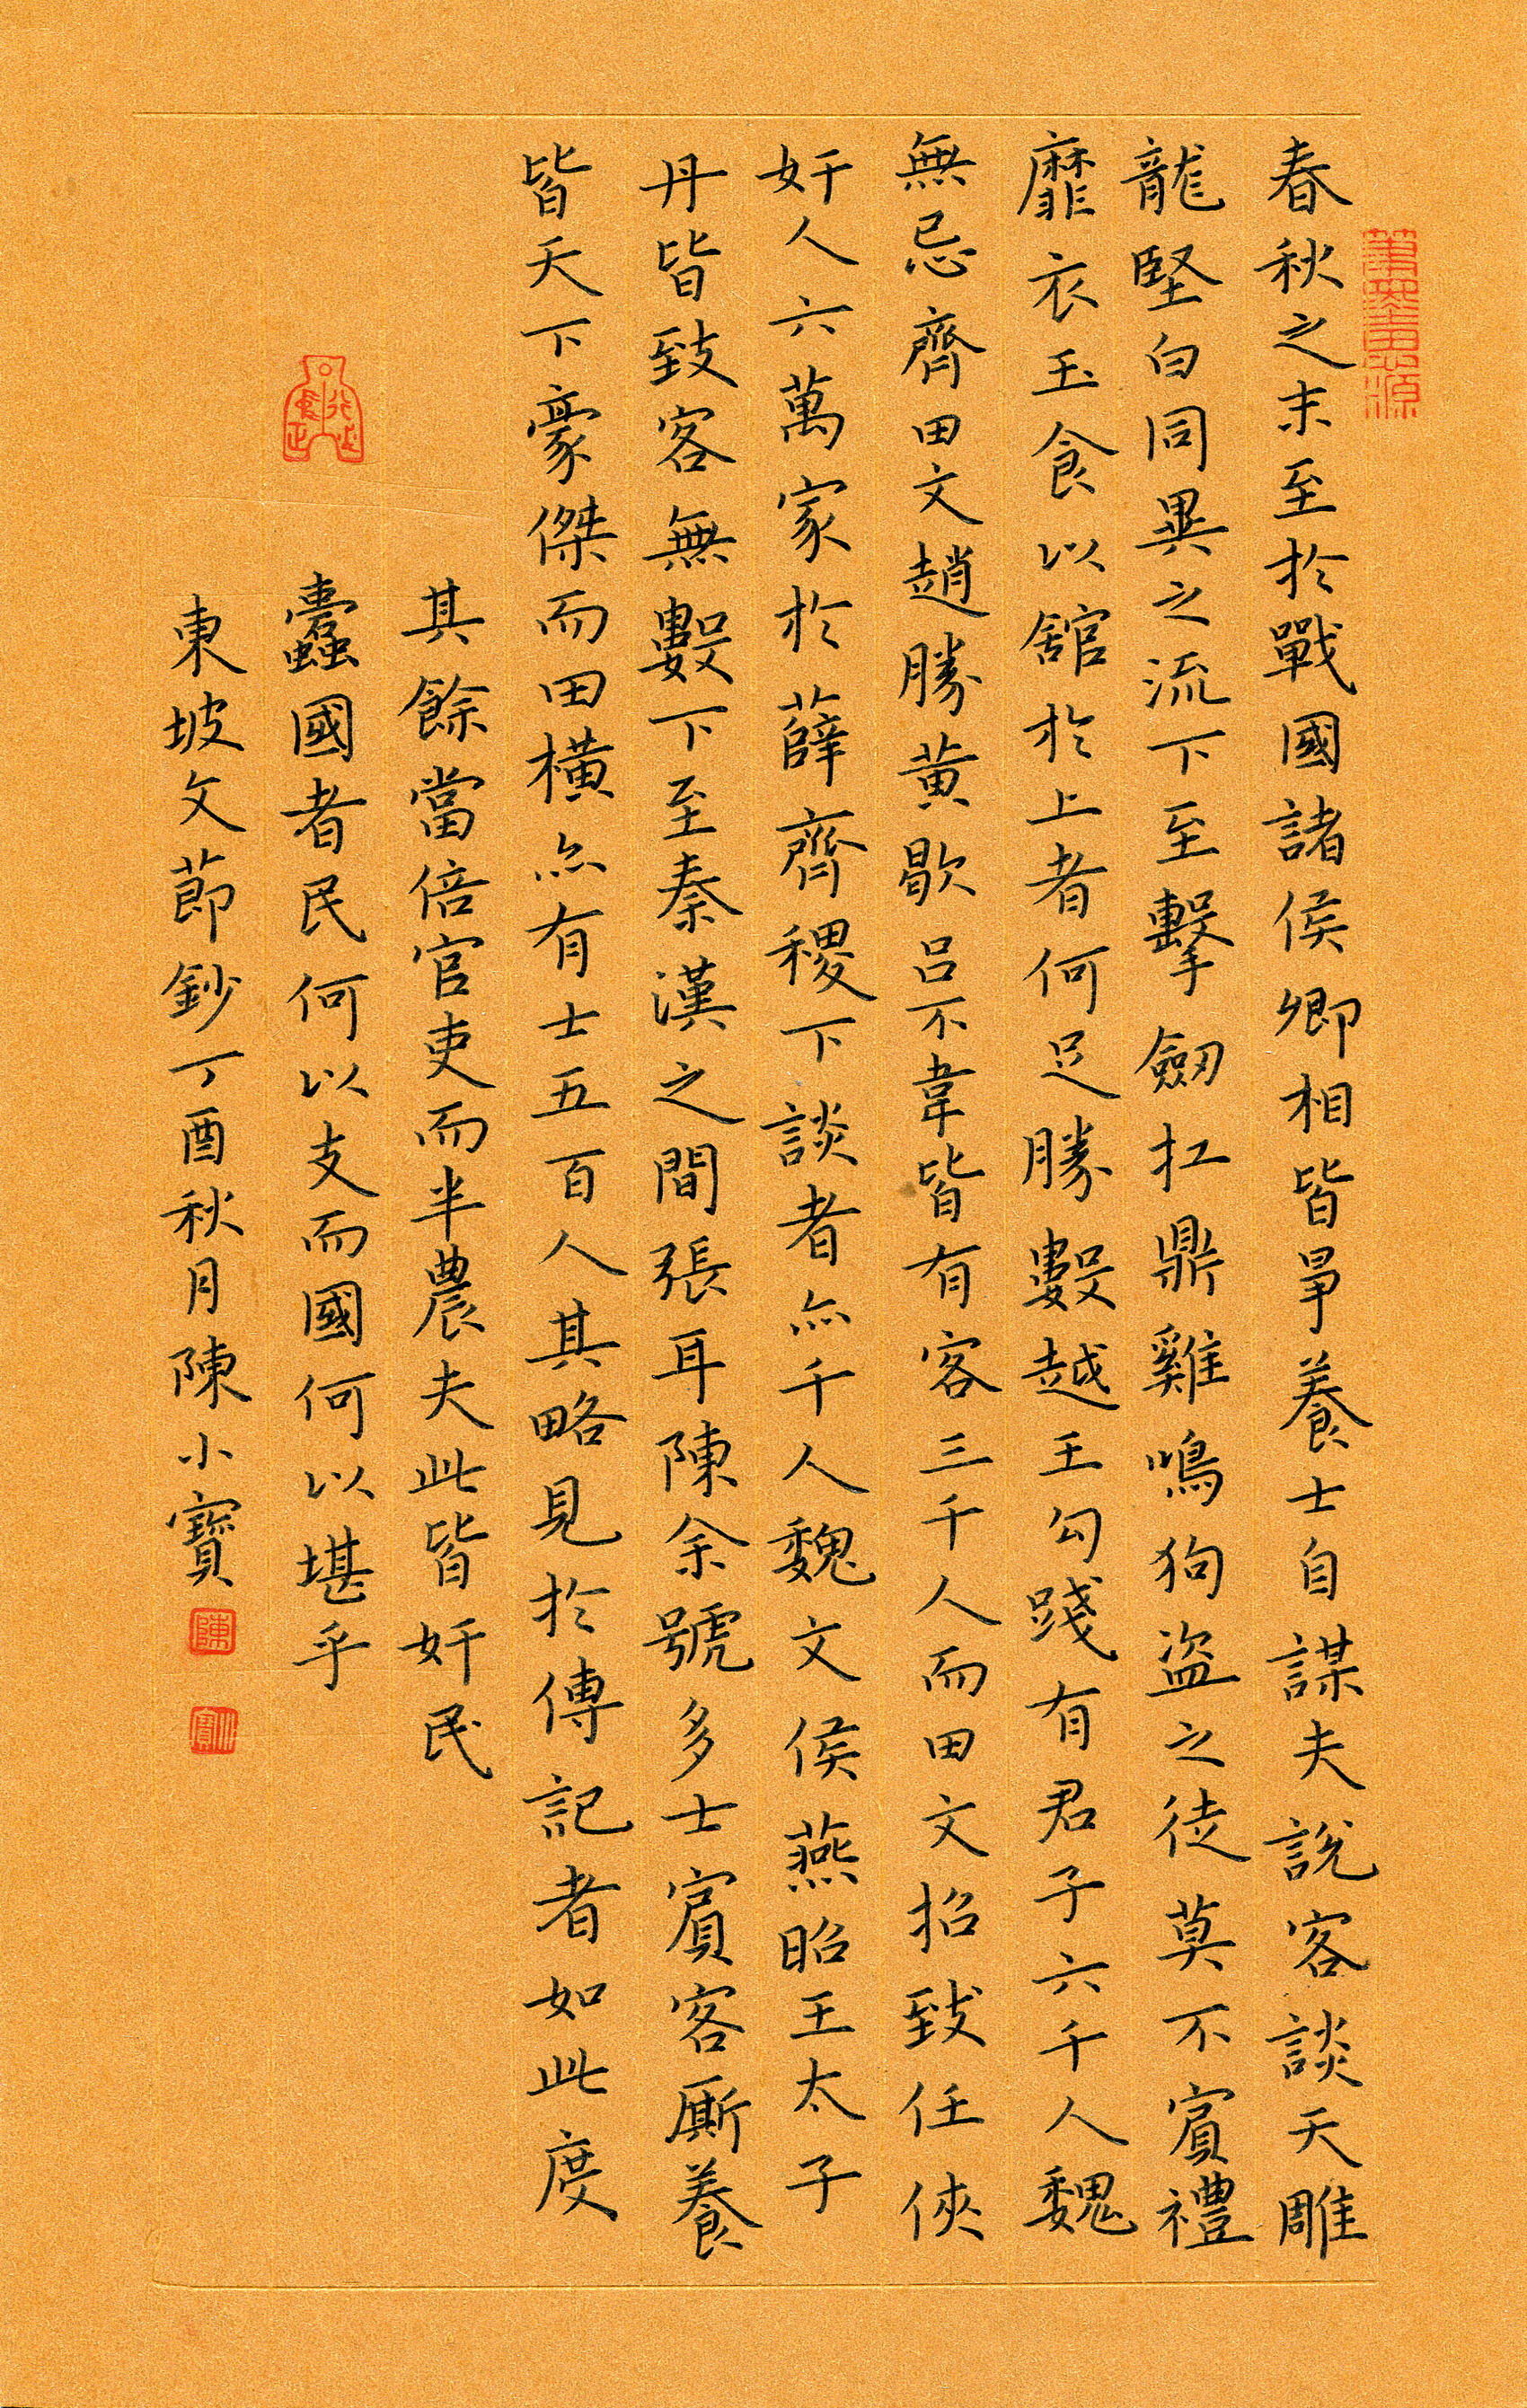 春秋之末至於戰國諸侯卿相皆爭養士自謀夫說客談天雕
龍堅白同異之流下至擊劒扛鼎雞鳴狗盜之徒莫不賓禮
靡衣玉食以舘於上者何足勝數越王勾踐有君子六千人魏
無忌齊田文趙勝黃歇呂不韋皆有客三千人而田文招致任俠
奸人六萬家於薛齊稷下談者亦千人魏文侯燕昭王太子
丹皆致客無數下至秦漢之間張耳陳余號多士賓客廝養
皆天下豪傑而田橫亦有士五百人其略見於傳記者如此度
其餘當倍官吏而半農夫此皆奸民
蠹國者民何以支而國何以堪乎
東坡文節鈔丁酉秋月陳小寶
陳
小寶